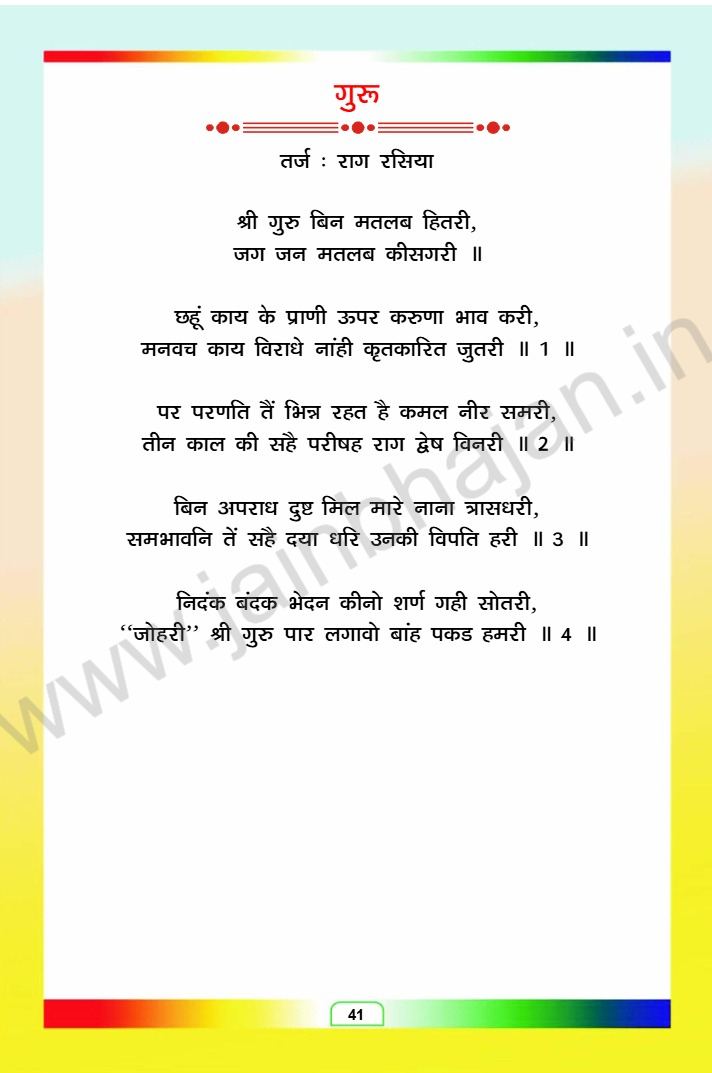 गुरू
तर्ज : राग रसिया
श्री गुरु बिन मतलब हितरी,
जग जन मतलब कीसगरी ॥
छहूं काय के प्राणी ऊपर करुणा भाव करी,
मनवच काय विराधे नांही कृतकारित जुतरी ॥ 1 ॥
पर परणति तैं भिन्न रहत है कमल नीर समरी,
तीन काल की सहै परीषह राग द्वेष विनरी ॥ 2 ॥
बिन अपराध दुष्ट मिल मारे नाना त्रासधरी,
समभावनि तें सहै दया धरि उनकी विपति हरी ॥ 3 ॥
निदंक बंदक भेदन कीनो शर्ण गही सोतरी,
‘‘जोहरी’’ श्री गुरु पार लगावो बांह पकड हमरी ॥ 4 ॥
www.jainbhajan.in
41